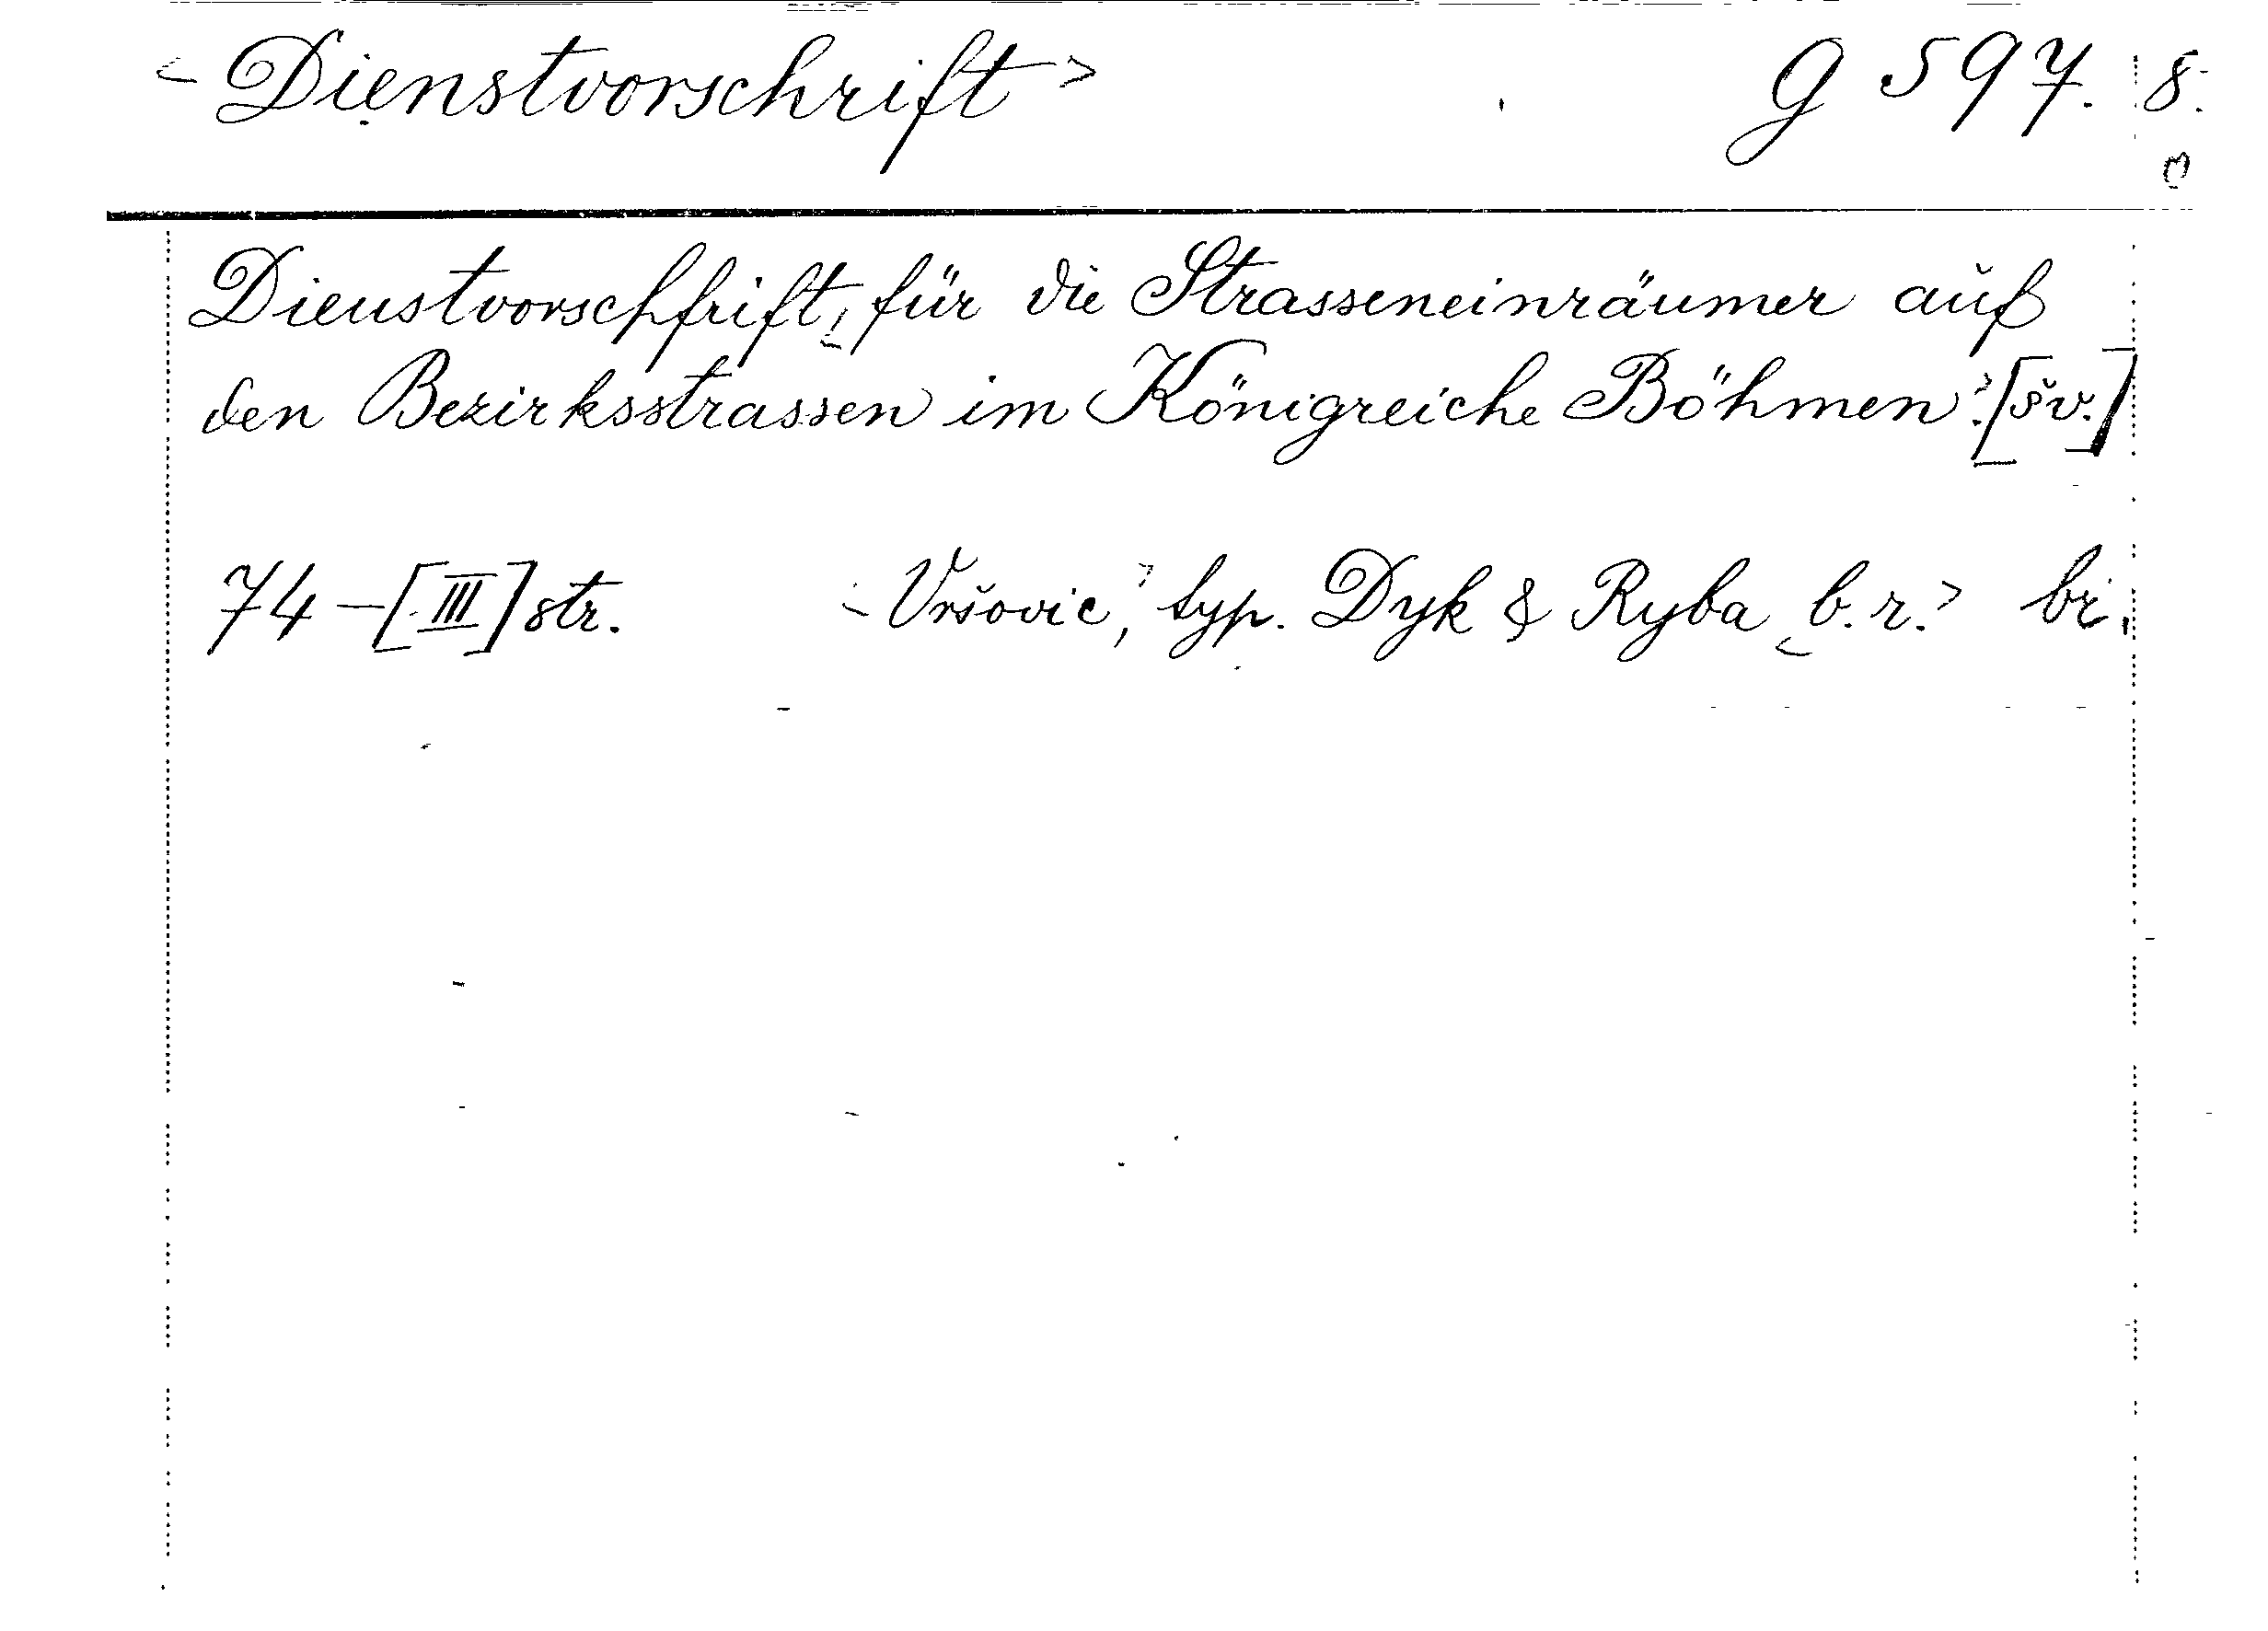 <Dienstvorschrift> G 597. 8.
Dienstvorschfrift, für die Strasseneinräumer auf
den Bezirksstrassen im Königreiche Böhmen. [šv.]
74-[III] str. <Vršovic,> typ. Dyk & Ryba <b. r.> br.